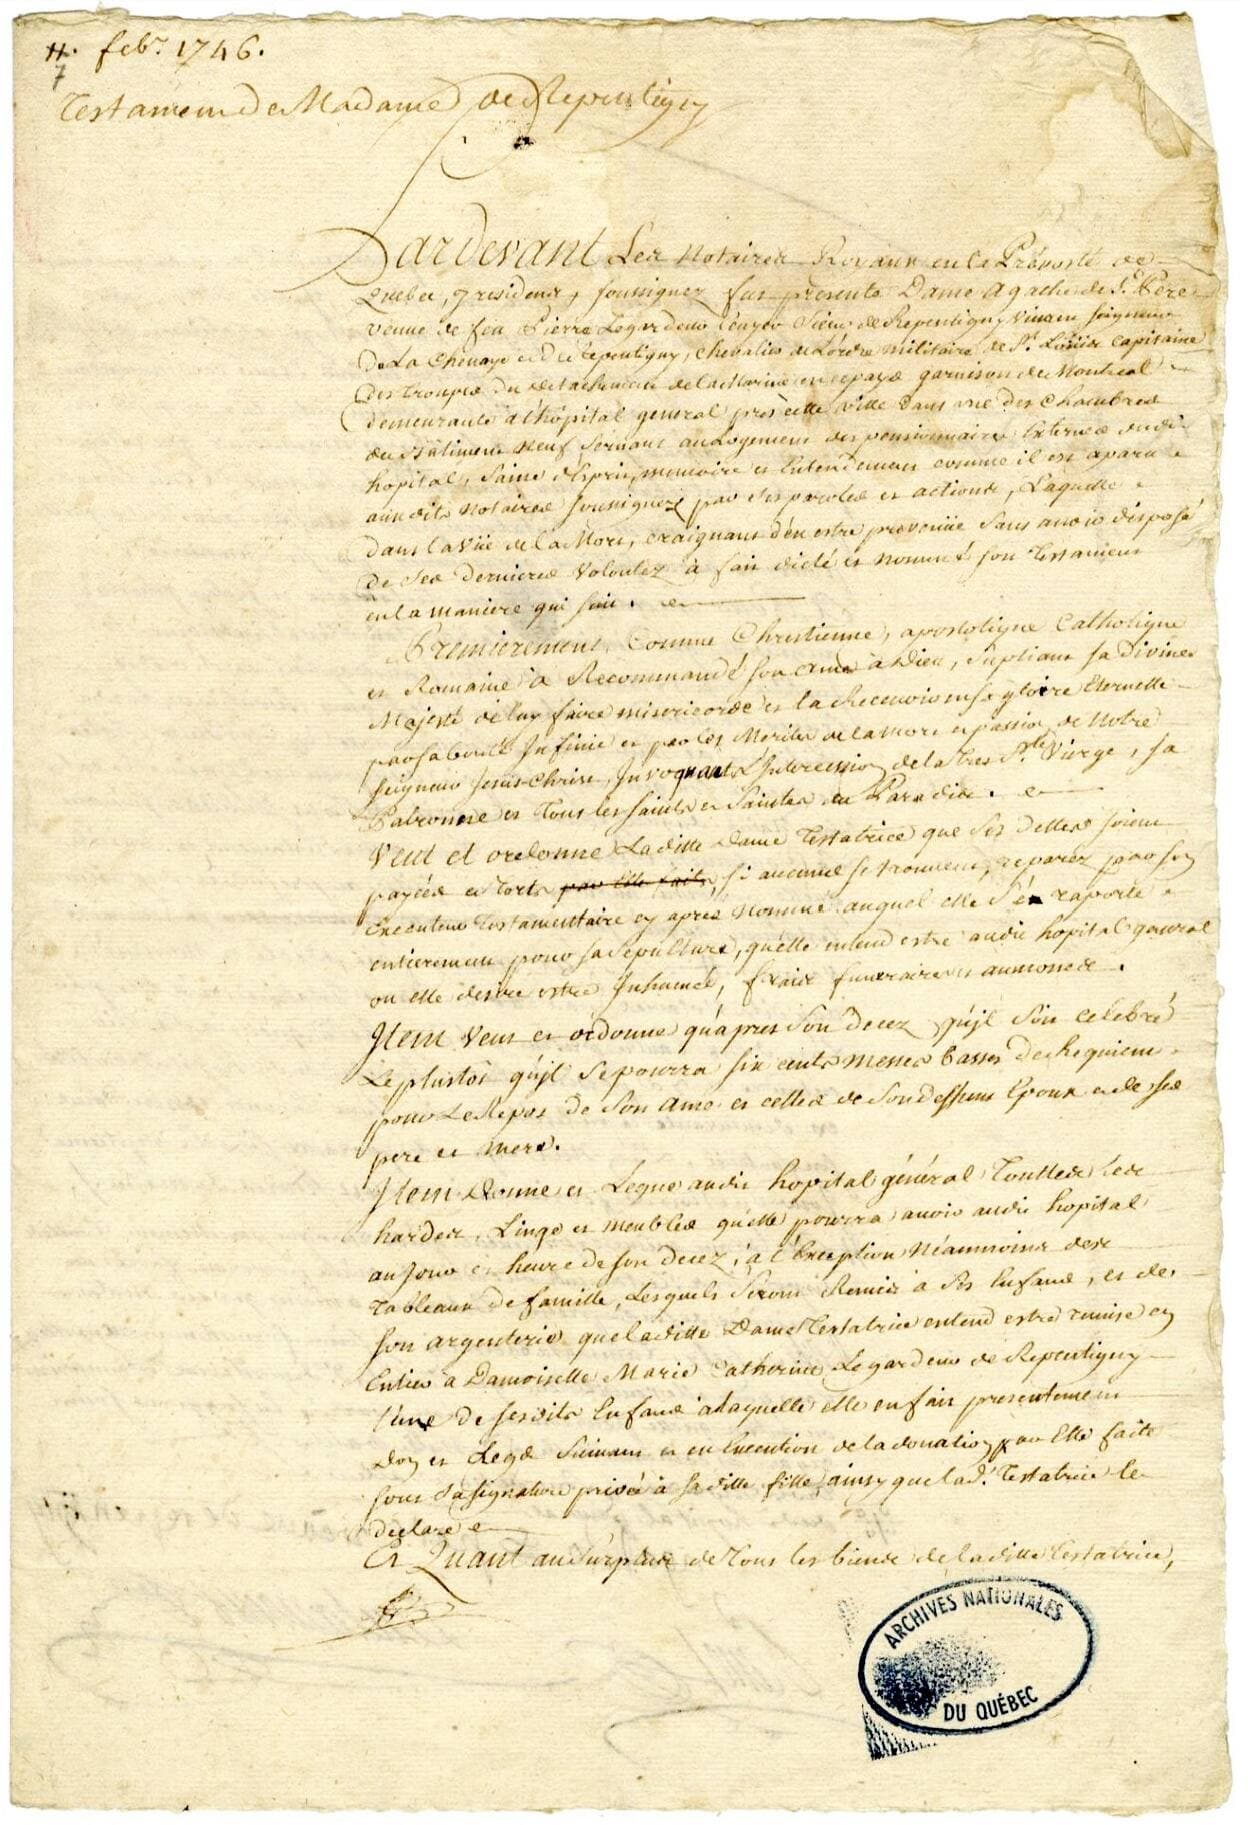 11. feb.r 1746.
7
Testament De Madame de Repentigny
Pardevant Les Notaires Royaux en la Prévosté de
Quebec, y residens, soussignez fut presente Dame Agathe de St. Pere
veuve de feu Pierre Legardeur Ecuyer Sieur de Repentigny vivant seigneur
De La Chenaye et De Repentigny, chevalier de L'ordre militaire de St. Loüis Capitaine
Des trouppes du détachement de la Marine en ce païs garnison de Montreal
demeurante à L'hôpital general près cette ville dans une des chambres
du Bâtiment neuf servant au Logement des pensionnaires Externes dudit
hopital, saine d'Esprit, memoire et Entendement comme il est aparu
aux dits Notaires soussignez par ses paroles et actions, Laquelle
dans la vüe de la Mort, craignant d'en estre prevenüe sans avoir disposé
De ses dernieres volontez à fait dicté et nommé son Testament
en la maniere qui suit.
Premierement, Comme Chrestienne, apostolique Catholique
et Romaine a Recommandé son ame à Dieu, supliant sa Divine
Majesté de luy faire misericorde et la Recevoir en sa gloire Eternelle
par sa bonté Infinie et par les Merites de la mort et passion de Notre
Seigneur Jesus-Christ, Invoquant L'Intercession de la tres Ste. Vierge, sa
Patronne et Tous les saints et Saintes du Paradis.
Veut et ordonne Laditte Dame Testatrice que ses dettes soient
payées et torts par Elle faits, si aucuns se trouvent, reparéz par son
Executeur Testamentaire cy après nommé auquel elle s'en raporte
entierement pour sa sepulture, qu'elle entend estre audit hopital general
ou elle desire estre Inhumée, fraix funeraires et aumosnes.
Item veut et ordonne qu'apres son decez qu'jl soit celebré
Le plustôt qu'jl se pourra six cents messes basses de Requiem
pour Le Repos de son ame et celles de son deffunt Epoux et de ses
pere et mere.
Item Donne et Legue audit hopital général Touttes Les
hardes, Linge et meubles qu'elle pourra avoir audit hopital
au jour et heure de son decez, à l'Exception Néanmoins des
Tableaux De famille, Lesquels seront Remis à ses Enfans, et de
son argenterie que laditte Dame Testatrice entend estre remise en
Entier a Damoiselle Marie Catherine Legardeur de Repentigny
l'une de sesdits Enfans à laquelle elle en fait presentement
don et Legs suivant et en Execution de la donation par Elle faite
sous sa signature privée à saditte fille, ainsy que lad. Testatrice le
declare
Et Quant au surplus de tous les biens de laditte testatrice,
ARCHIVES NATIONALES
DU QUÉBEC